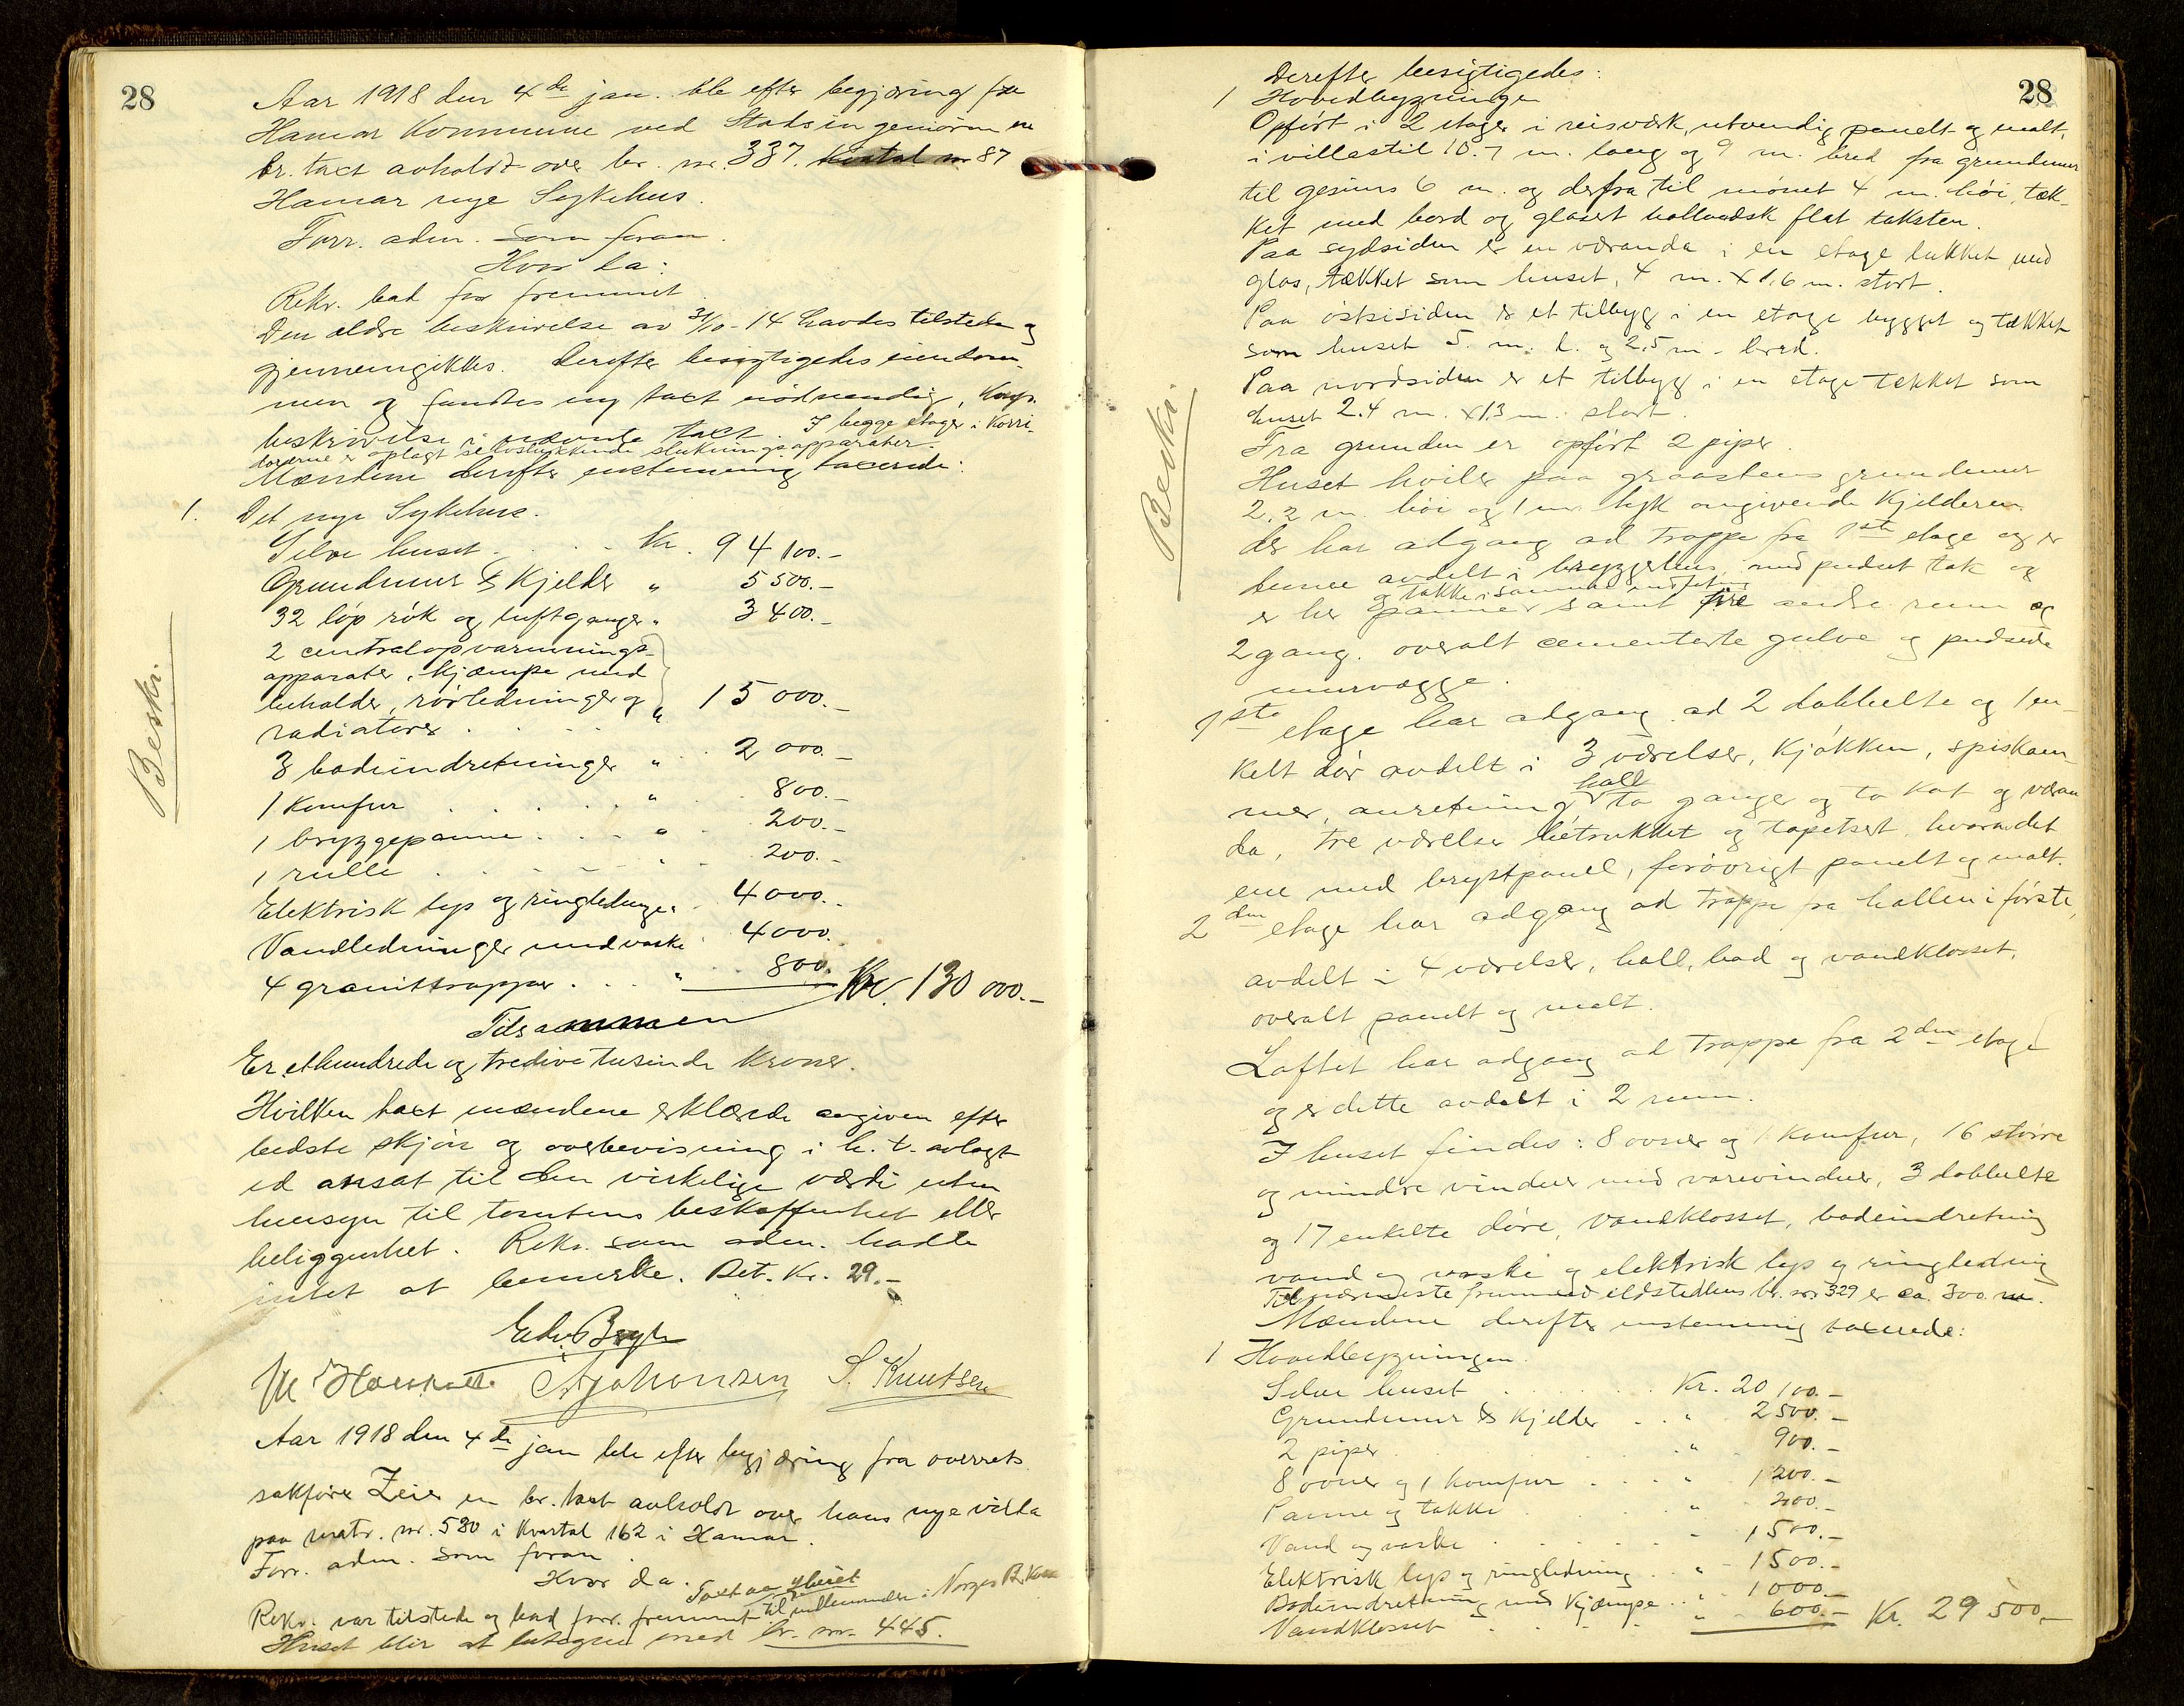 28
Aar 1918 den 4de jan. ble efter begjæring fra
Hamar Kommune ved Stadsingeniøren en
br. taxt avholdt over br. nr. 337. Kvartal nr 87
Hamar nye Sykehus.
Forr. adm. som foran.
Hvor da:
Rekv. bad forr fremmet
Den ældre beskrivelse av 31/10-14 havdes tilstede og
gjennemgikkes. Derefter besigtigedes eiendom-
men og fandtes ny taxt nødvendig,
beskrivelse i nævnte taxt. I begge etager i Korri-
dorerne er oplagt selvslukkende slukningsapparater.
Mændene derefter enstemmig taxerede:
Beskr.
1. Det nye Sykehus.
Selve huset . . . Kr. 94 100.-
Grundmur & Kjelder " 5 500.-
32 løp røk og luftganger " 3 400.-
2 centralopvarmnings-
apparater, Kjæmpe med
beholder, rørledninger og " 15 000.-
radiatorer . . .
3 badeindretninger " 2 000.-
1 Komfur . . . " 800.-
1 bryggepanne . . . " 200.-
1 rulle . . . " 200.-
Elektrisk lys og ringledninger 4 000.-
Vandledninger med vaske 4 000.
4 granittrapper . . . " 800.
Tilsammen Kr. 130 000.-
Er ethundrede og tredive tusinde Kroner.
Hvilken taxt mændene erklærede avgiven efter
bedste skjøn og overbevisning i h. t. avlagt
ed ansat til den virkelige værdi uten
hensyn til tomtens beskaffenhet eller
beliggenhet. Rekv. som adm. hadde
intet at bemerke. Bet. Kr. 29.-
Edv. Bryhn
A Johansen S. Knutsen
Aar 1918 den 4de jan ble efter begjæring fra overrets
sakfører Zeier en br. taxt avholdt over hans nye villa
paa matr. nr. 530 i Kvartal 162 i Hamar.
Forr. adm. som foran.
Hvor da.
Rekv. var tilstede og bad forr. fremmet til indlemmelse i Norges B. Kasse
Huset blir at betegne med br. nr. 445.
28
Derefter besigtigedes:
1 Hovedbygningen
Opført i 2 etager i reisværk, utvendig panelt og malt,
i villastil 10.7 m. lang og 9 m. bred fra grundmur
til gesims 6 m. og derfra til mønet 4 m. høi, tæk-
ket med bord og glasert hollandsk flat taksten.
Paa sydsiden er en væranda i en etage lukket med
glas, tækket som huset, 4 m. x 1.6 m. stort.
Paa østsiden er et tilbygg i en etage bygget og tækket
som huset 5. m. l. og 2.5 m. bred.
Paa nordsiden er et tilbygg i en etage tekket som
huset 2.4 m. x 1.3 m. stort.
Beskr.
Fra grunden er opført 2 piper.
Huset hviler paa graastens grundmur
2.2 m. høi og 1 m. tyk omgivende Kjelderen.
der har adgang ad trappe fra 1ste etage og er
denne avdelt i bryggerhus, med pudset tak og
og takke i samme indfatning
er her panner samt fire andre rum og
2 gang. overalt cementerte gulve og pudsede
murvægge.
1ste etage har adgang ad 2 dobbelte og 1 en-
kelt dør avdelt i 3 værelser, Kjøkken, spiskam-
hall
mer, anretning to ganger og to Kot og væran
da, tre værelser bétrukket og tapetsert hvorav det
ene med brystpanel, forøvrigt panelt og malt.
2den etage har adgang ad trappe fra hallen i første,
avdelt i 4 værelser, hall, bad og vandklosset,
overalt panelt og malt.
Loftet har adgang ad trappe fra 2den etage
og er dette avdelt i 2 rum.
I huset findes: 8 ovner og 1 Komfur, 16 større
og mindre vinduer med varevinduer, 3 dobbelte
og 17 enkelte døre, vandklosset, badeindretning
vand og vaske og elektrisk lys og ringledning
Til nærmeste fremmed ildstedhus br. nr. 329 er ca. 300 m.
Mændene derefter enstemmig taxerede:
1 Hovedbygningen.
Selve huset . . . Kr. 20 100.-
Grundmur & Kjelder . . " 2 500.-
2 piper . . . " 900.-
8 ovner og 1 Komfur . . . " 1 200.-
Panne og takke . . . " 200.-
Vand og vaske . . . " 1 500.-
Elektrisk lys og ringledning . . " 1 500.-
Badeindretning med Kjæmpe . . " 1 000.-
Vandklosset . . . " 600.- Kr. 29 500.-